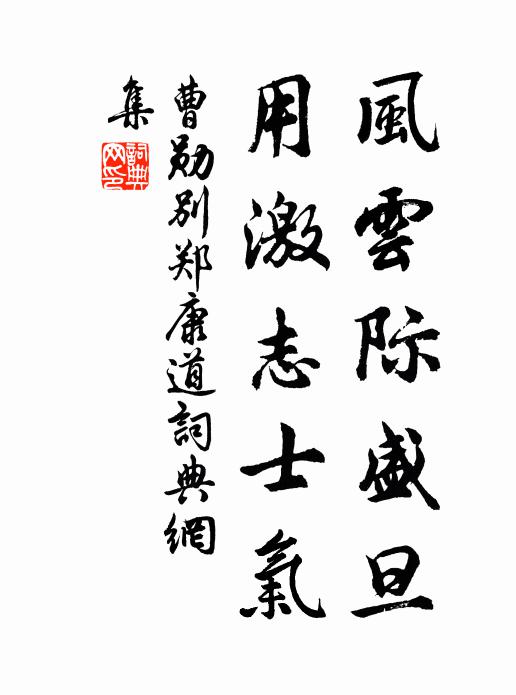 風雲际盛旦
用激志士氣
曹勋别郑康道詞典網
集
詞典网印